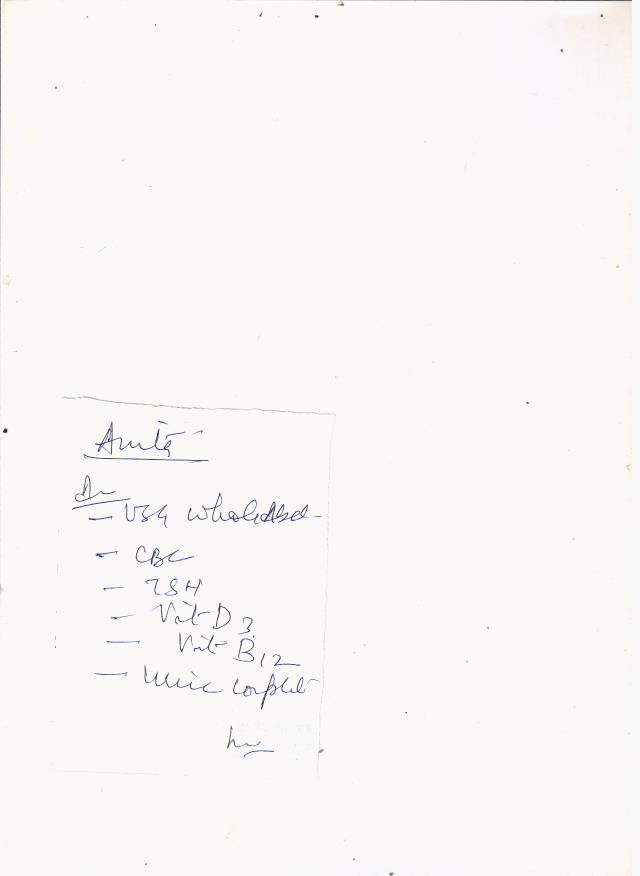 Anita
Av
- USG Whole Abd-
- CBC
- TSH
- Vit D3
- Vit B12
- Urine complet